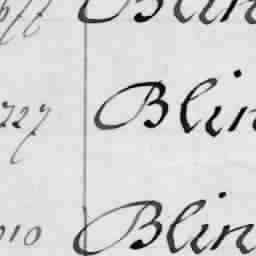 Blin
727 Blin
010 Blin